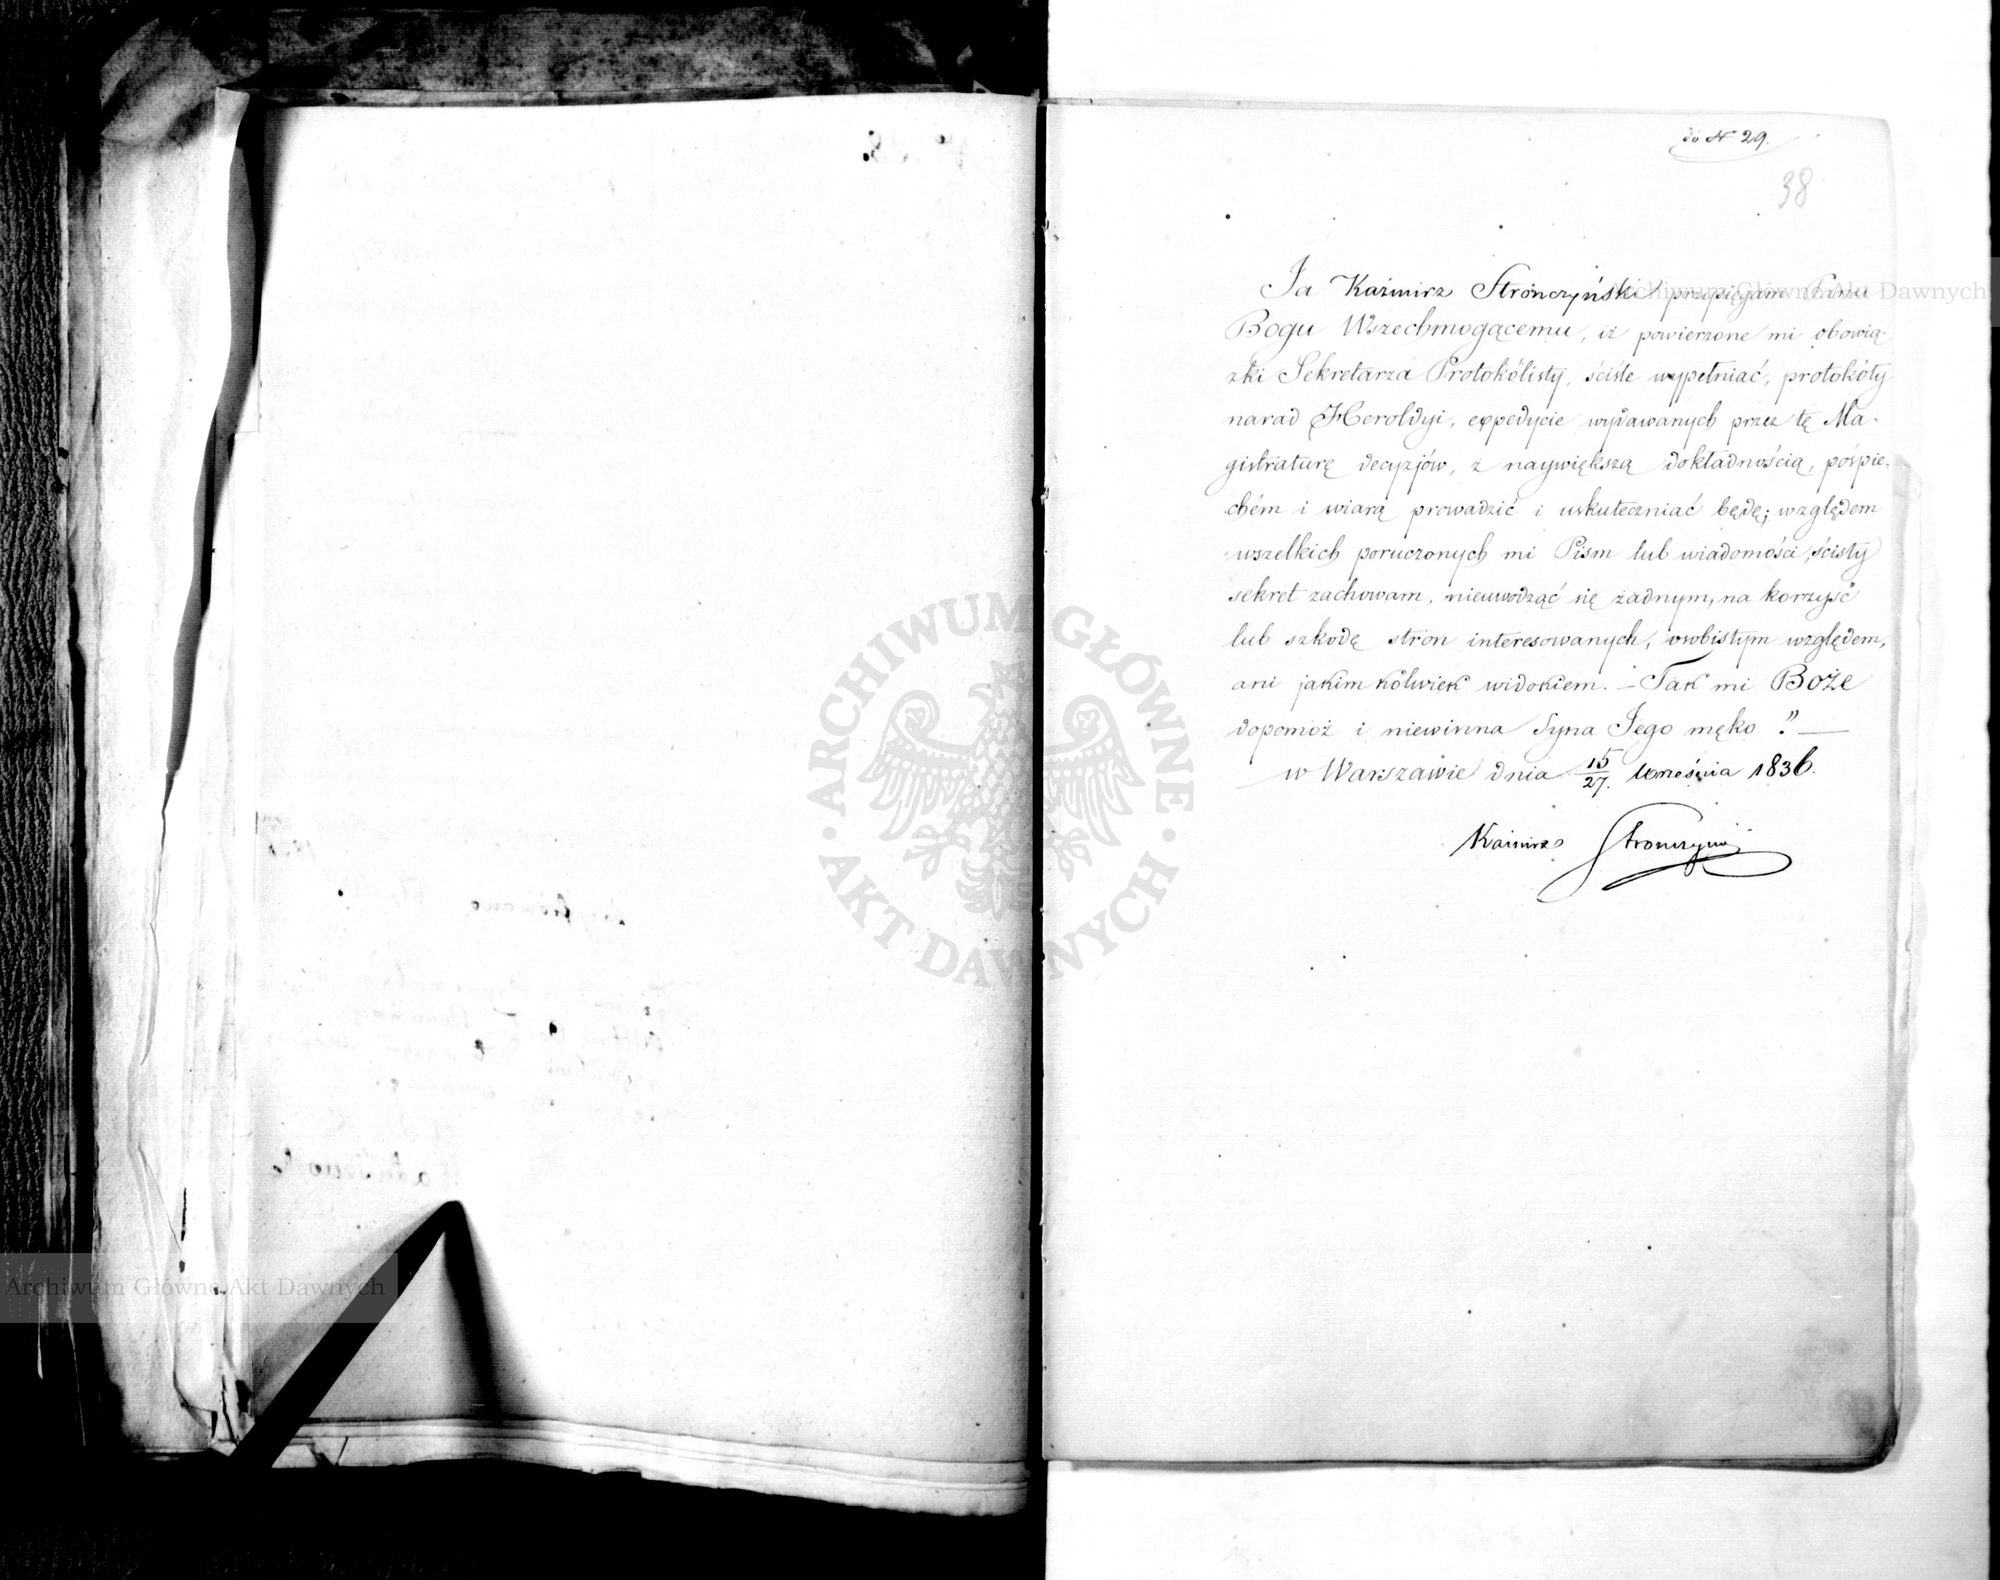 do N 29.
38
Ja Kaźmirz Strończyński przysięgam Panu
Bogu Wszechmogącemu, iż powierzone mi obowią-
zki Sekretarza Protokólisty, ściśle wypełniać, protokóły
narad Heroldyi, expedycie wydawanych przez tę Ma-
gistraturę decyzjów, z naywiększą dokładnością, pośpie-
chém i wiarą prowadzić i uskuteczniać będę; względem
wszelkich poruczonych mi Pism lub wiadomości, ścisły
sekret zachowam, nieuwodząc się żadnym, na korzyść
lub szkodę stron interesowanych, osobistym względem,
ani jakimkólwiek widokiem. – Tak mi Boże
dopomóż i niewinna Syna Jego męko !" —
w Warszawie dnia 15/27. Września 1836.
Kaźmirz Strończyński
ARCHIWUM GŁÓWNE
AKT DAWNYCH
Archiwum Główne Akt Dawnych
Archiwum Główne Akt Dawnych